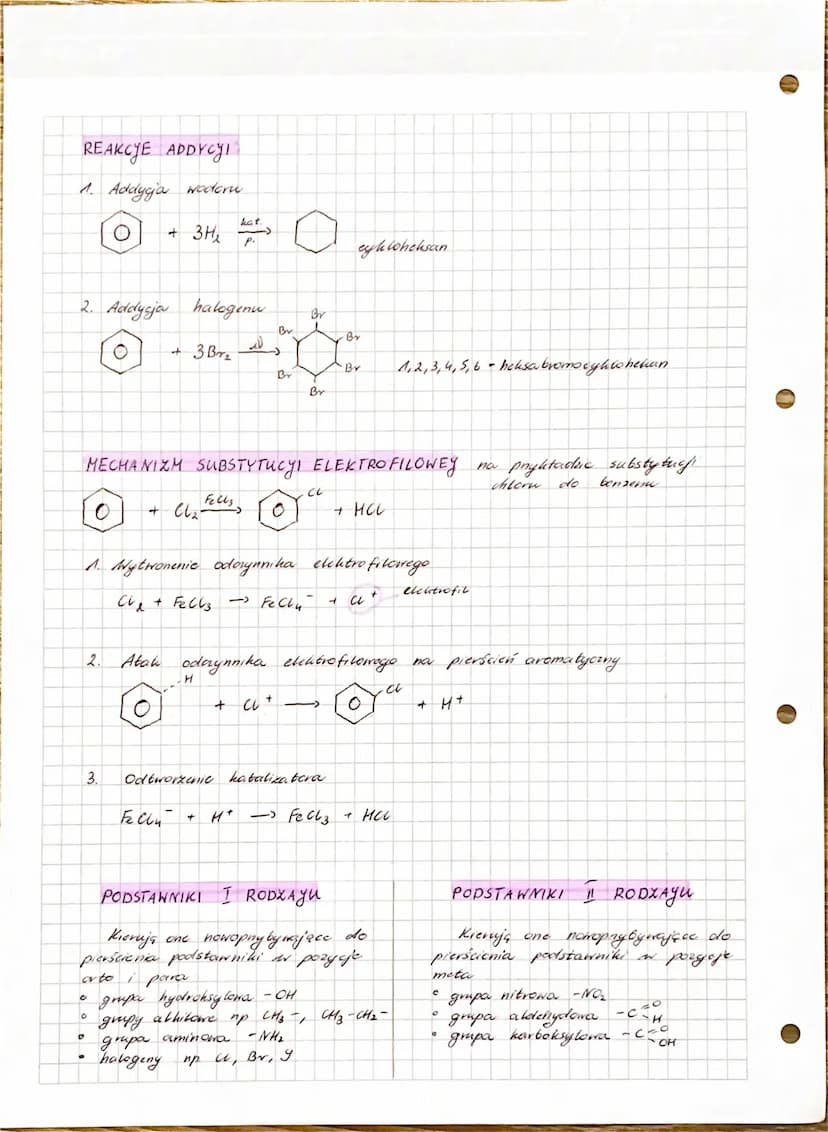 REAKCJE ADDYCJI
1. Addycja wodoru
+ 3H₂ kat. p. →
cykloheksan
2. Addycja halogenu
Br
Br Br
+ 3Br₂ → Br 1,2,3,4,5,6 - heksabromocykloheksan
Br
Br
MECHANIZM SUBSTYTUCJI ELEKTROFILOWEJ na przykładzie substytucji
chloru do benzenu
+ Cl₂ FeCl₃ → Cl + HCl
1. Wytworzenie odczynnika elektrofilowego
Cl₂ + FeCl₃ → FeCl₄⁻ + Cl⁺ elektrofil
2. Atak odczynnika elektrofilowego na pierścień aromatyczny
H + Cl⁺ → Cl + H⁺
3. Odtworzenie katalizatora
FeCl₄⁻ + H⁺ → FeCl₃ + HCl
PODSTAWNIKI I RODZAJU
Kierują one nowoprzybywające do
pierścienia podstawniki w pozycje
orto i para
° grupa hydroksylowa -OH
° grupy alkilowe np CH₃-, CH₃-CH₂-
° grupa aminowa -NH₂
• halogeny np Cl, Br, J
PODSTAWNIKI II RODZAJU
Kierują one nowoprzybywające do
pierścienia podstawniki w pozycje
meta
° grupa nitrowa -NO₂
° grupa aldehydowa -C=O -H
• grupa karboksylowa -C=O -OH